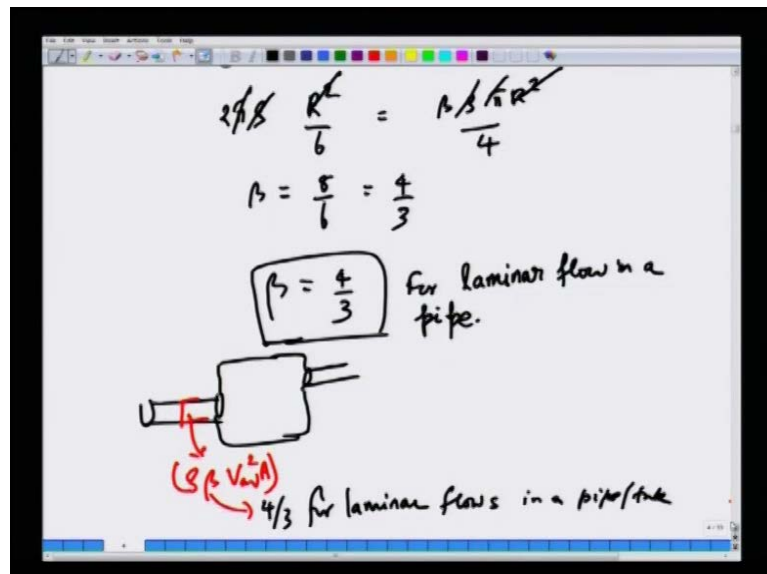 File Edit View Insert Actions Tools Help
2πρ R²/6 = βρπR²/4
β = 8/6 = 4/3
β = 4/3 For laminar flow in a
pipe.
(ρ β Vav² A)
4/3 for laminar flows in a pipe/tube